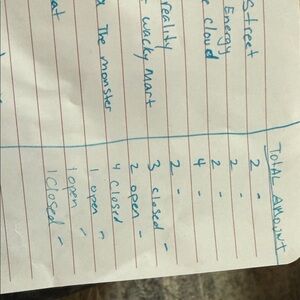 TOTAL AMOUNT
Street 2 -
Energy 2 -
e Cloud 2 -
4 -
reality 2 -
wacky Mart 3 closed -
2 open -
The monster 4 closed
1 open -
at 1 open -
1 closed -